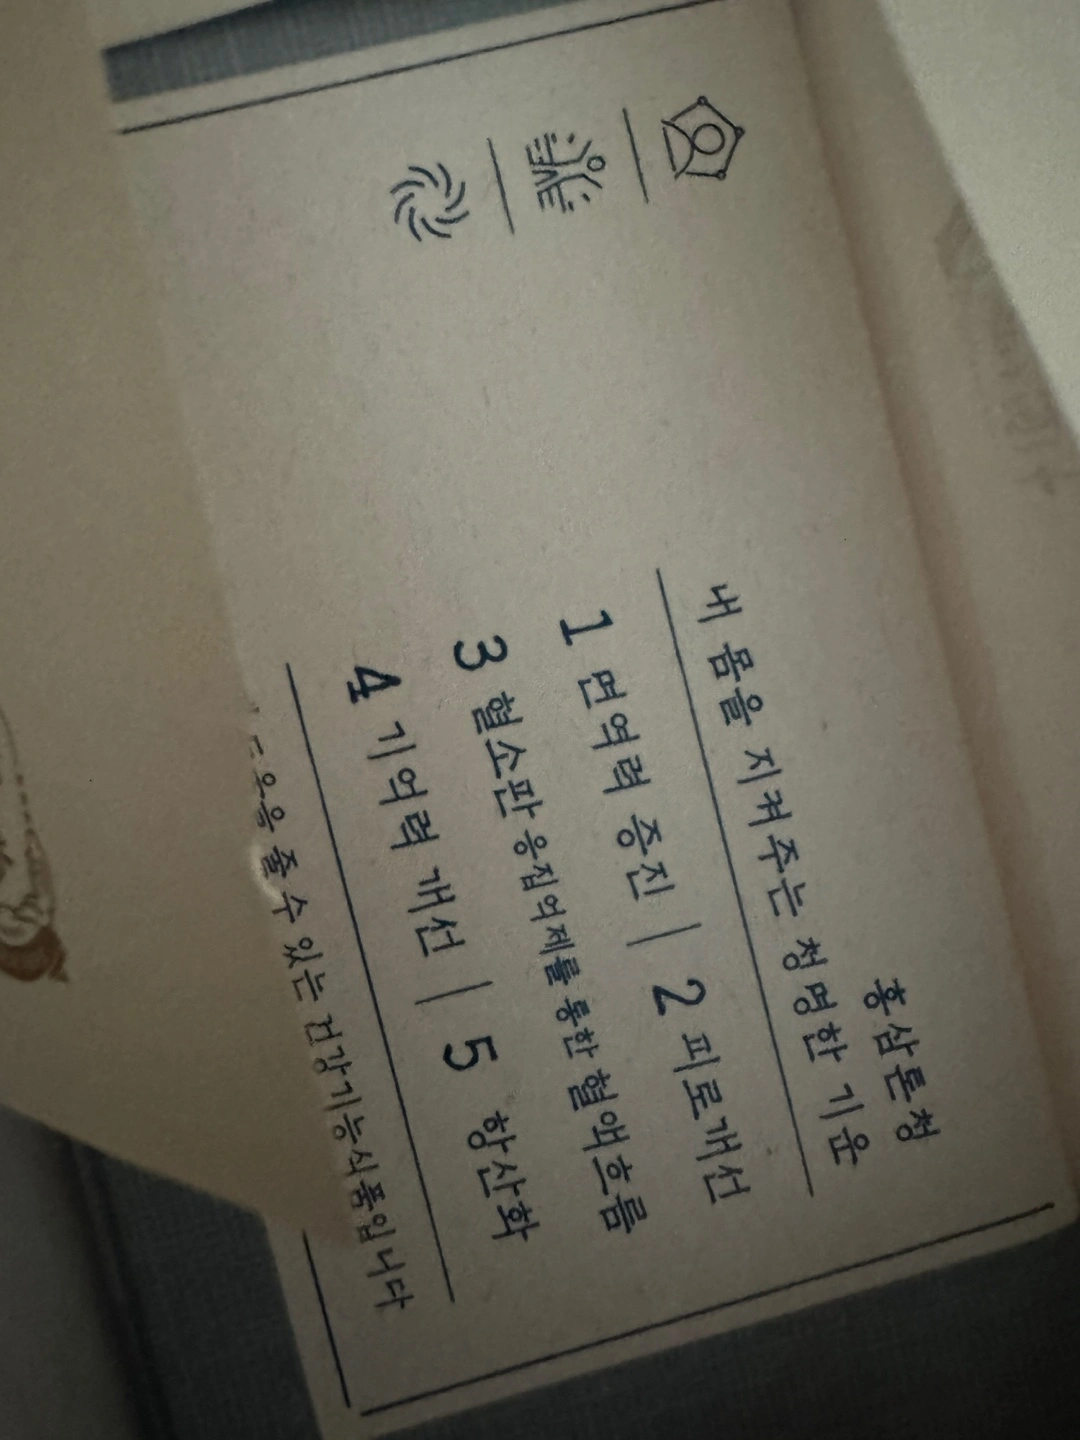 홍삼톤청
내 몸을 지켜주는 청명한 기운
1 면역력 증진 | 2 피로개선
3 혈소판 응집억제를 통한 혈액흐름
4 기억력 개선 | 5 항산화
도움을 줄 수 있는 건강기능식품입니다